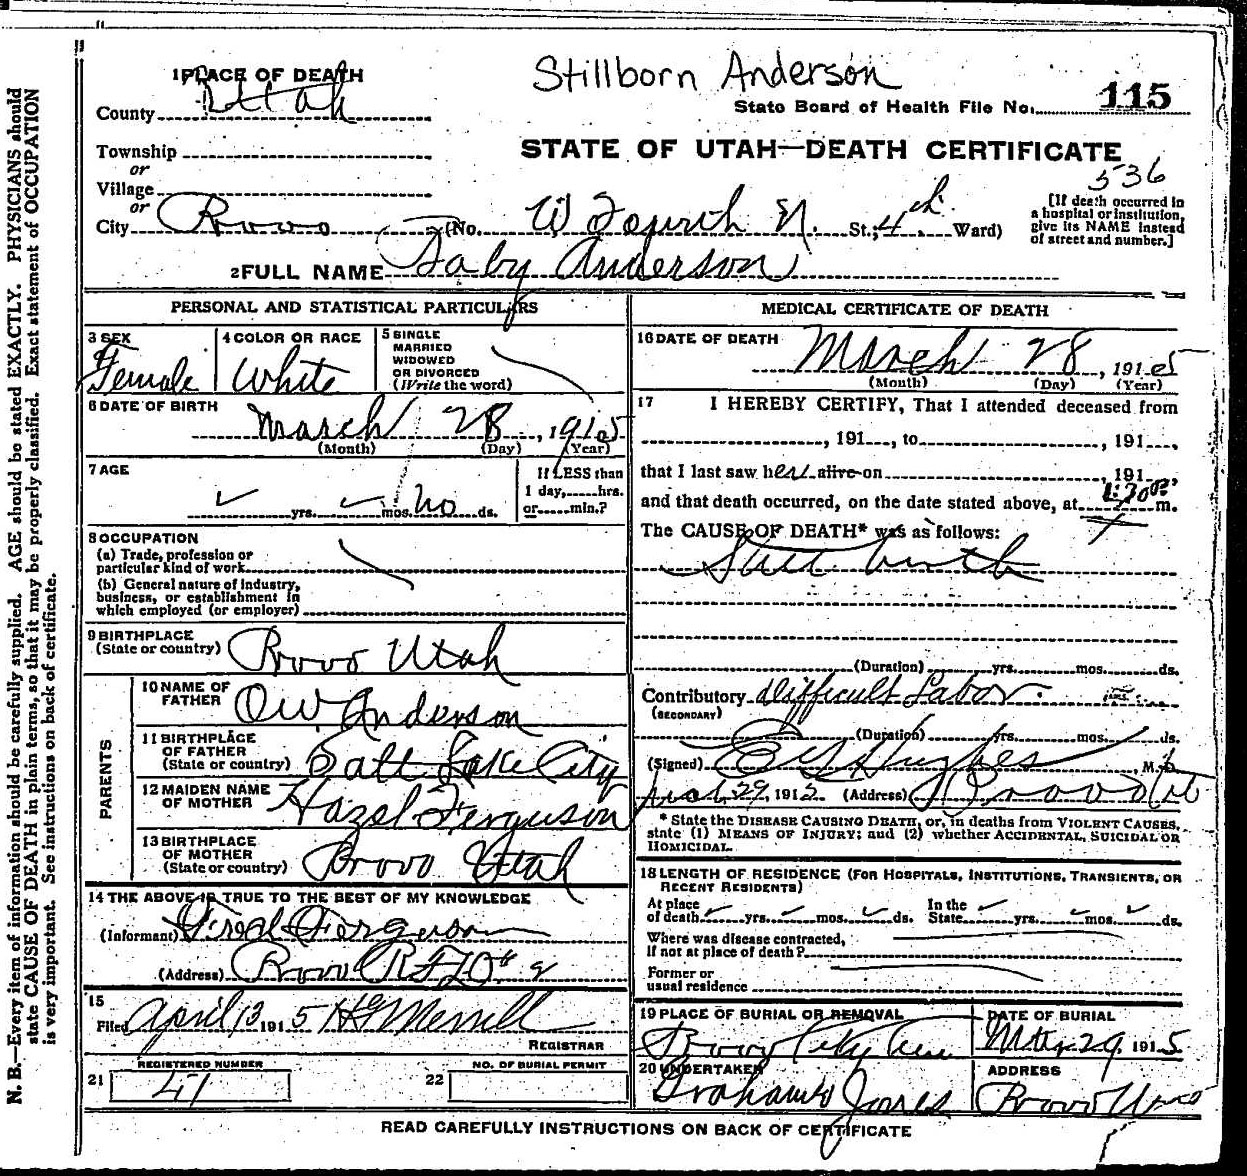 Stillborn Anderson
1 PLACE OF DEATH
County Utah
State Board of Health File No. 115
STATE OF UTAH—DEATH CERTIFICATE
536
Township
or
Village
or
City Provo (No. W Fourth N. St.; 4th Ward)
[If death occurred in
a hospital or institution,
give its NAME instead
of street and number.]
2 FULL NAME Baby Anderson
PERSONAL AND STATISTICAL PARTICULARS
3 SEX
Female
4 COLOR OR RACE
White
5 SINGLE
MARRIED
WIDOWED
OR DIVORCED
(Write the word)
6 DATE OF BIRTH
March 28, 1915
(Month) (Day) (Year)
7 AGE
yrs. mos. no ds.
If LESS than
1 day, hrs.
or min.?
8 OCCUPATION
(a) Trade, profession or
particular kind of work
(b) General nature of industry,
business, or establishment in
which employed (or employer)
9 BIRTHPLACE
(State or country) Provo Utah
PARENTS
10 NAME OF
FATHER OW Anderson
11 BIRTHPLACE
OF FATHER
(State or country) Salt Lake City
12 MAIDEN NAME
OF MOTHER Hazel Ferguson
13 BIRTHPLACE
OF MOTHER
(State or country) Provo Utah
14 THE ABOVE IS TRUE TO THE BEST OF MY KNOWLEDGE
(Informant) Fred Fergerson
(Address) Provo RFD # 2
15
Filed April 13 1915 HG Merrill
REGISTRAR
REGISTERED NUMBER
21 47
NO. OF BURIAL PERMIT
22
MEDICAL CERTIFICATE OF DEATH
16 DATE OF DEATH
March 28, 1915
(Month) (Day) (Year)
17 I HEREBY CERTIFY, That I attended deceased from
, 191 , to , 191 ,
that I last saw her alive on , 191 ,
and that death occurred, on the date stated above, at m.
The CAUSE OF DEATH* was as follows:
Still birth
(Duration) yrs. mos. ds.
Contributory Difficult Labor.
(SECONDARY)
(Duration) yrs. mos. ds.
(Signed) Hughes M.D.
29, 1915 (Address) Provo Ut
* State the DISEASE CAUSING DEATH, or, in deaths from VIOLENT CAUSES,
state (1) MEANS OF INJURY; and (2) whether ACCIDENTAL, SUICIDAL OR
HOMICIDAL.
18 LENGTH OF RESIDENCE (FOR HOSPITALS, INSTITUTIONS, TRANSIENTS, OR
RECENT RESIDENTS)
At place
of death yrs. mos. ds.
In the
State yrs. mos. ds.
Where was disease contracted,
If not at place of death?
Former or
usual residence
19 PLACE OF BURIAL OR REMOVAL
Provo City Cem
DATE OF BURIAL
Mar 29, 1915
20 UNDERTAKER
Graham & Jones
ADDRESS
Provo Utah
READ CAREFULLY INSTRUCTIONS ON BACK OF CERTIFICATE
N. B.—Every item of information should be carefully supplied. AGE should be stated EXACTLY. PHYSICIANS should
state CAUSE OF DEATH in plain terms, so that it may be properly classified. Exact statement of OCCUPATION
is very important. See instructions on back of certificate.